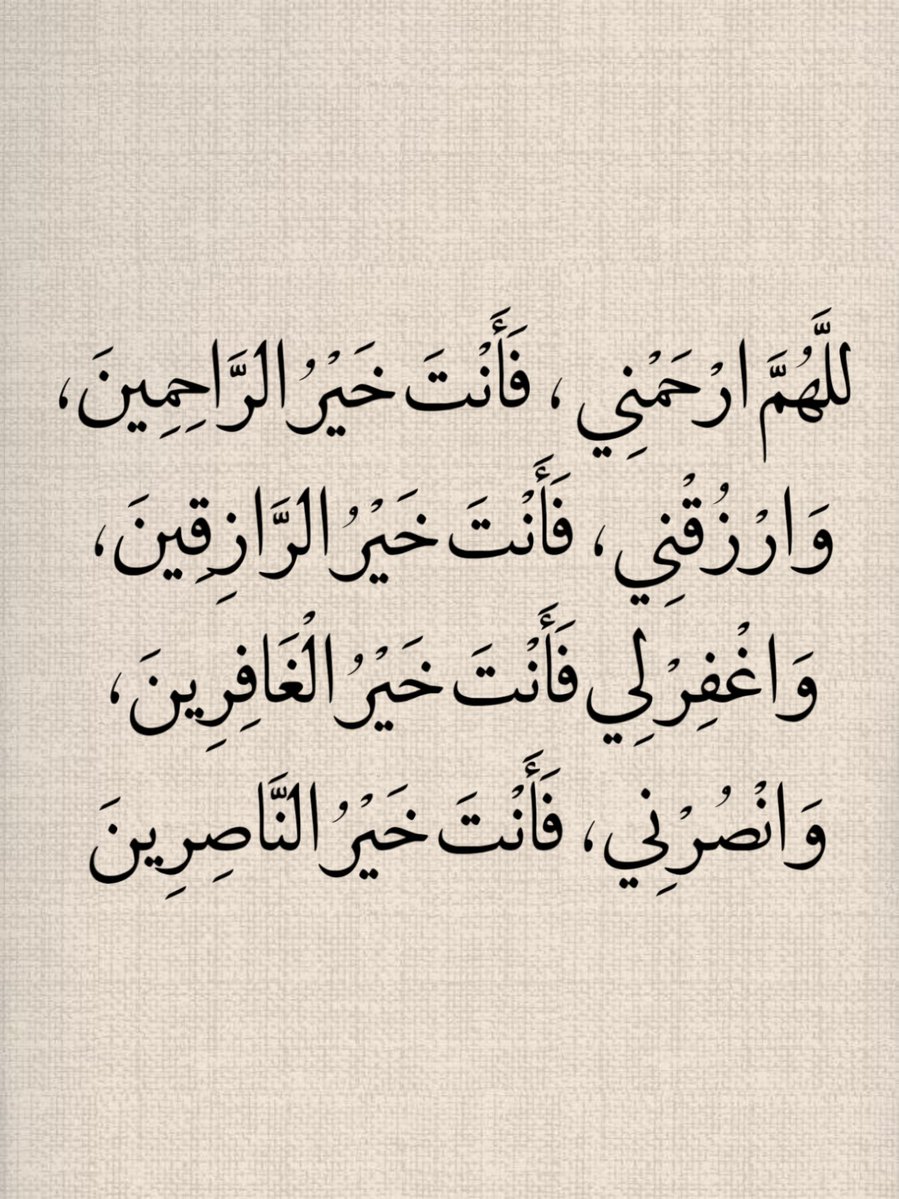 للَّهُمَّ ارْحَمْنِي ، فَأَنْتَ خَيْرُ الرَّاحِمِينَ،
وَارْزُقْنِي، فَأَنْتَ خَيْرُ الرَّازِقِينَ،
وَاغْفِرْ لِي فَأَنْتَ خَيْرُ الْغَافِرِينَ،
وَانْصُرْنِي، فَأَنْتَ خَيْرُ النَّاصِرِينَ